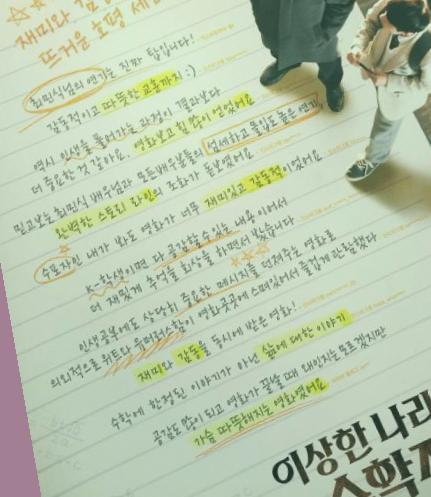 재미와 감동
뜨거운 호평 세
최민식님의 연기는 진짜 탑입니다!
감동적이고 따뜻한 교훈까지 :)
역시 인생을 풀어가는 과정이 결과보다
더 중요한 것 같아요. 영화보고 힘 많이 얻었어요
믿고보는 최민식 배우님과 모든배우분들의 섬세하고 몰입도 높은 연기
완벽한 스토리 라인의 조화가 돋보였어요
수포자인 내가 봐도 영화가 너무 재미있고 감동적이었어요
K-학생이면 다 공감할 수 있는 내용이어서
더 재밌게 추억을 회상을 하면서 봤습니다
인생공부에도 상당히 중요한 메시지를 던져주는 영화로
의외적으로 위트와 유머러스함이 영화곳곳에 스며있어서 즐겁게 관람했다
재미와 감동을 동시에 받은 영화!
수학에 한정된 이야기가 아닌 삶에 대한 이야기
공감도 많이 되고 영화가 끝날 때 왜인지는 모르겠지만
가슴 따뜻해지는 영화였어요
이상한 나라
수학자